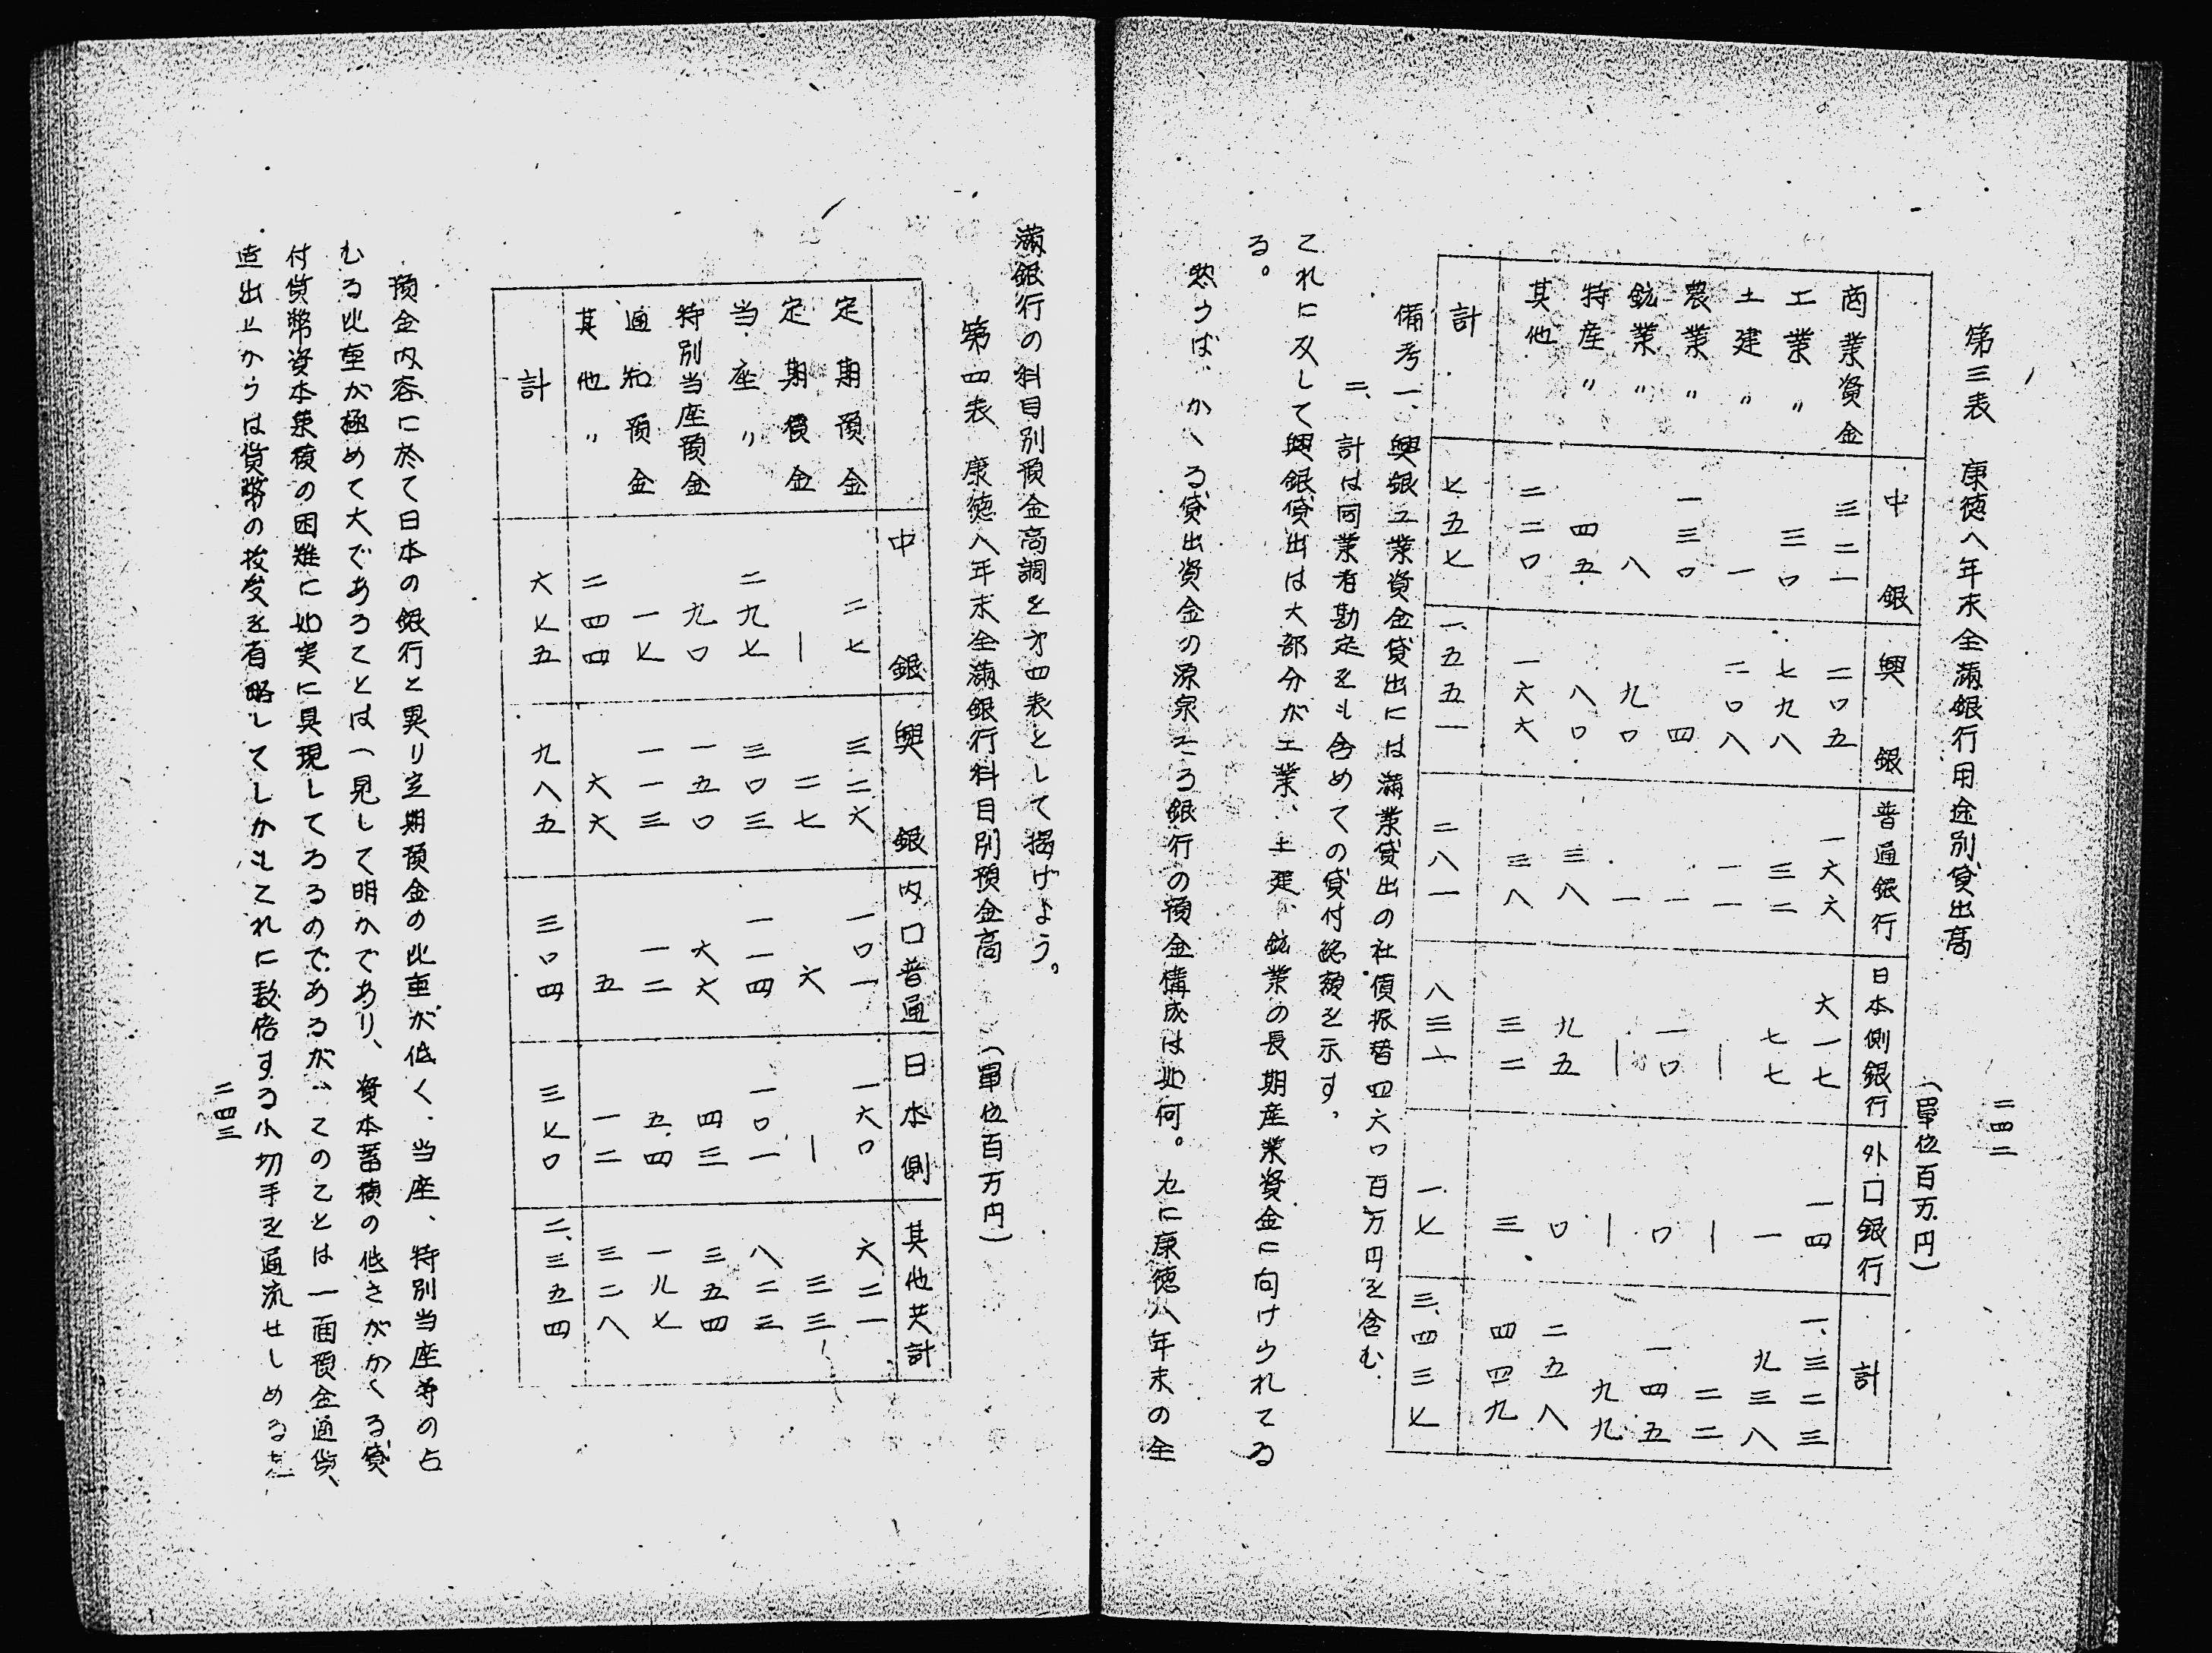 二四二
第三表　康徳八年末全満銀行用途別貸出高　（單位百万円）
中銀　興銀　普通銀行　日本側銀行　外口銀行　計
商業資金　三二一　二〇五　一六六　六一七　一四　一、三二三
工業〃　三〇　七九八　三二　七七　一　九三八
土建〃　一　二〇八　一一　―　―　二二
農業〃　一三〇　四　一　一〇　〇　一四五
鉱業〃　八　九〇　一　―　―　九九
特産〃　四五　八〇　三八　九五　〇　二五八
其他　二二〇　一六六　三八　三二　三　四四九
計　七五七　一、五五一　二八一　八三一　一七　三、四三七
備考一、興銀工業資金貸出には満業貸出の社債振替四六〇百万円を含む
二、計は同業者勘定をも含めての貸付総額を示す。
これに反して興銀貸出は大部分が工業、土建、鉱業の長期産業資金に向けられてゐ
る。
然らば、かゝる貸出資金の源泉たる銀行の預金構成は如何。左に康徳八年末の全
満銀行の科目別預金高調を才四表として掲げよう。
第四表　康徳八年末全満銀行科目別預金高　（單位百万円）
中銀　興銀　内口普通　日本側　其他共計
定期預金　二七　三二六　一〇一　一六〇　六二一
定期積金　―　二七　六　―　三三
当座〃　二九七　三〇三　一一四　一〇一　八二三
特別当座預金　九〇　一五〇　六六　四三　三五四
通知預金　一七　一一三　一二　五四　一九七
其他〃　二四四　六六　五　一二　三二八
計　六七五　九八五　三〇四　三七〇　二、三五四
預金内容に於て日本の銀行と異り定期預金の比重が低く、当座、特別当座等の占
むる比重が極めて大であることは一見して明かであり、資本蓄積の低さがかくる貸
付貨幣資本集積の困難に如実に具現してゐるのであるが、このことは一面預金通貨、
造出上からは貨幣の抜受を有略してしかもこれに数倍する小切手を通流せしめる
二四三